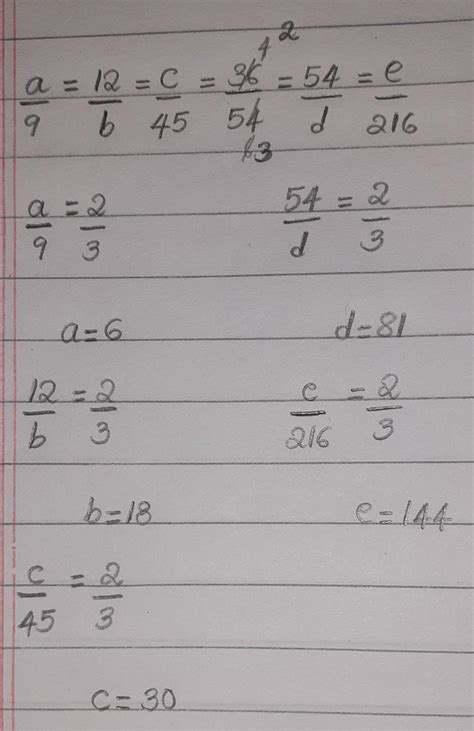 4 2
a/9 = 12/b = c/45 = 36/54 = 54/d = e/216
6 3
a/9 = 2/3 54/d = 2/3
a=6 d=81
12/b = 2/3 e/216 = 2/3
b=18 e=144
c/45 = 2/3
c=30